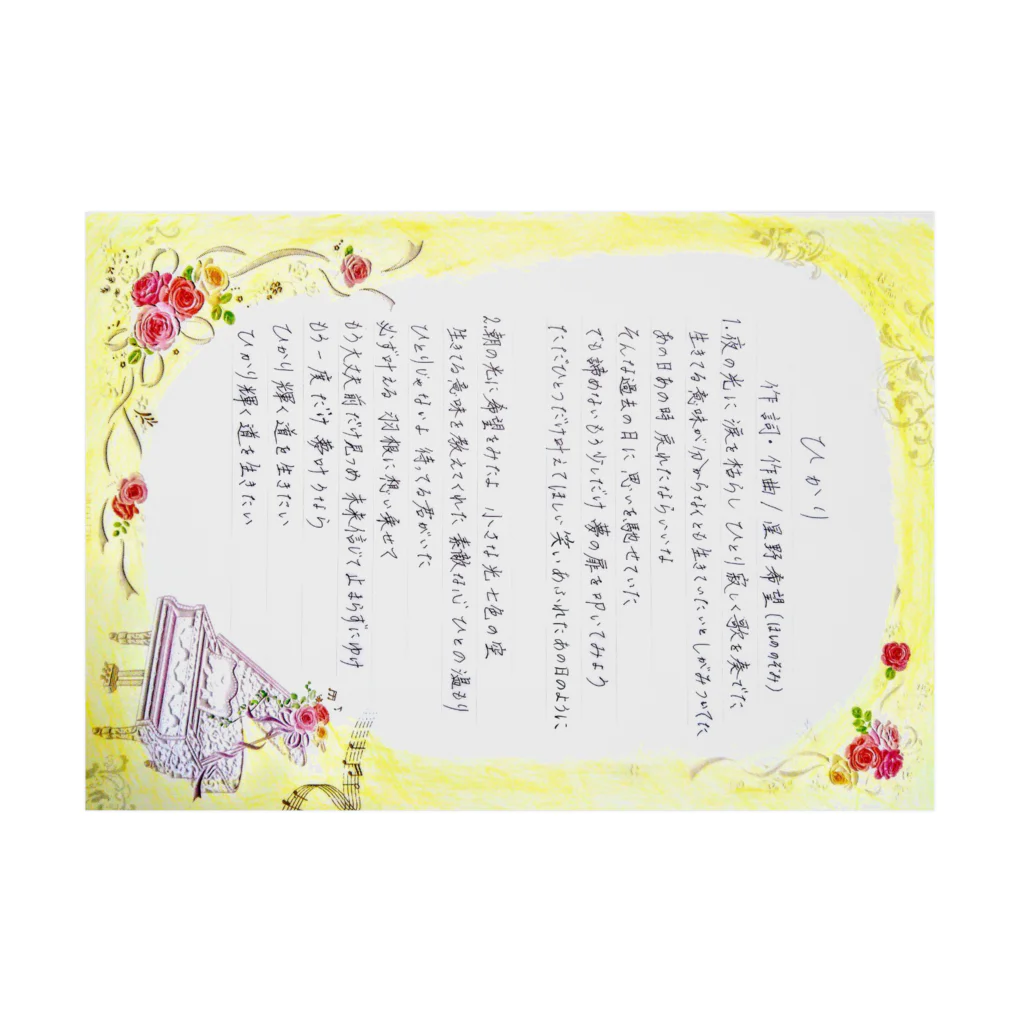 ひかり
作詞・作曲/星野希望(ほしのぞみ)
1.夜の光に 涙を枯らし ひとり寂しく歌を奏でた
生きてる意味が分からなくとも生きていたいとしがみついてた
あの日あの時 戻れたならいいな
そんな過去の日に 思いを馳せていた
でも諦めないもう少しだけ 夢の扉を叩いてみよう
ただひとつだけ叶えてほしい笑いあふれたあの日のように
2.朝の光に希望をみたよ 小さな光 七色の空
生きてる意味を教えてくれた 素敵な心 ひとの温もり
ひとりじゃないよ 待ってる君がいた
必ず叶える 羽根に想い乗せて
もう大丈夫 前だけ見つめ 未来信じて止まらずにゆけ
もう一度だけ 夢叶うなら
ひかり輝く道を生きたい
ひかり輝く道を生きたい